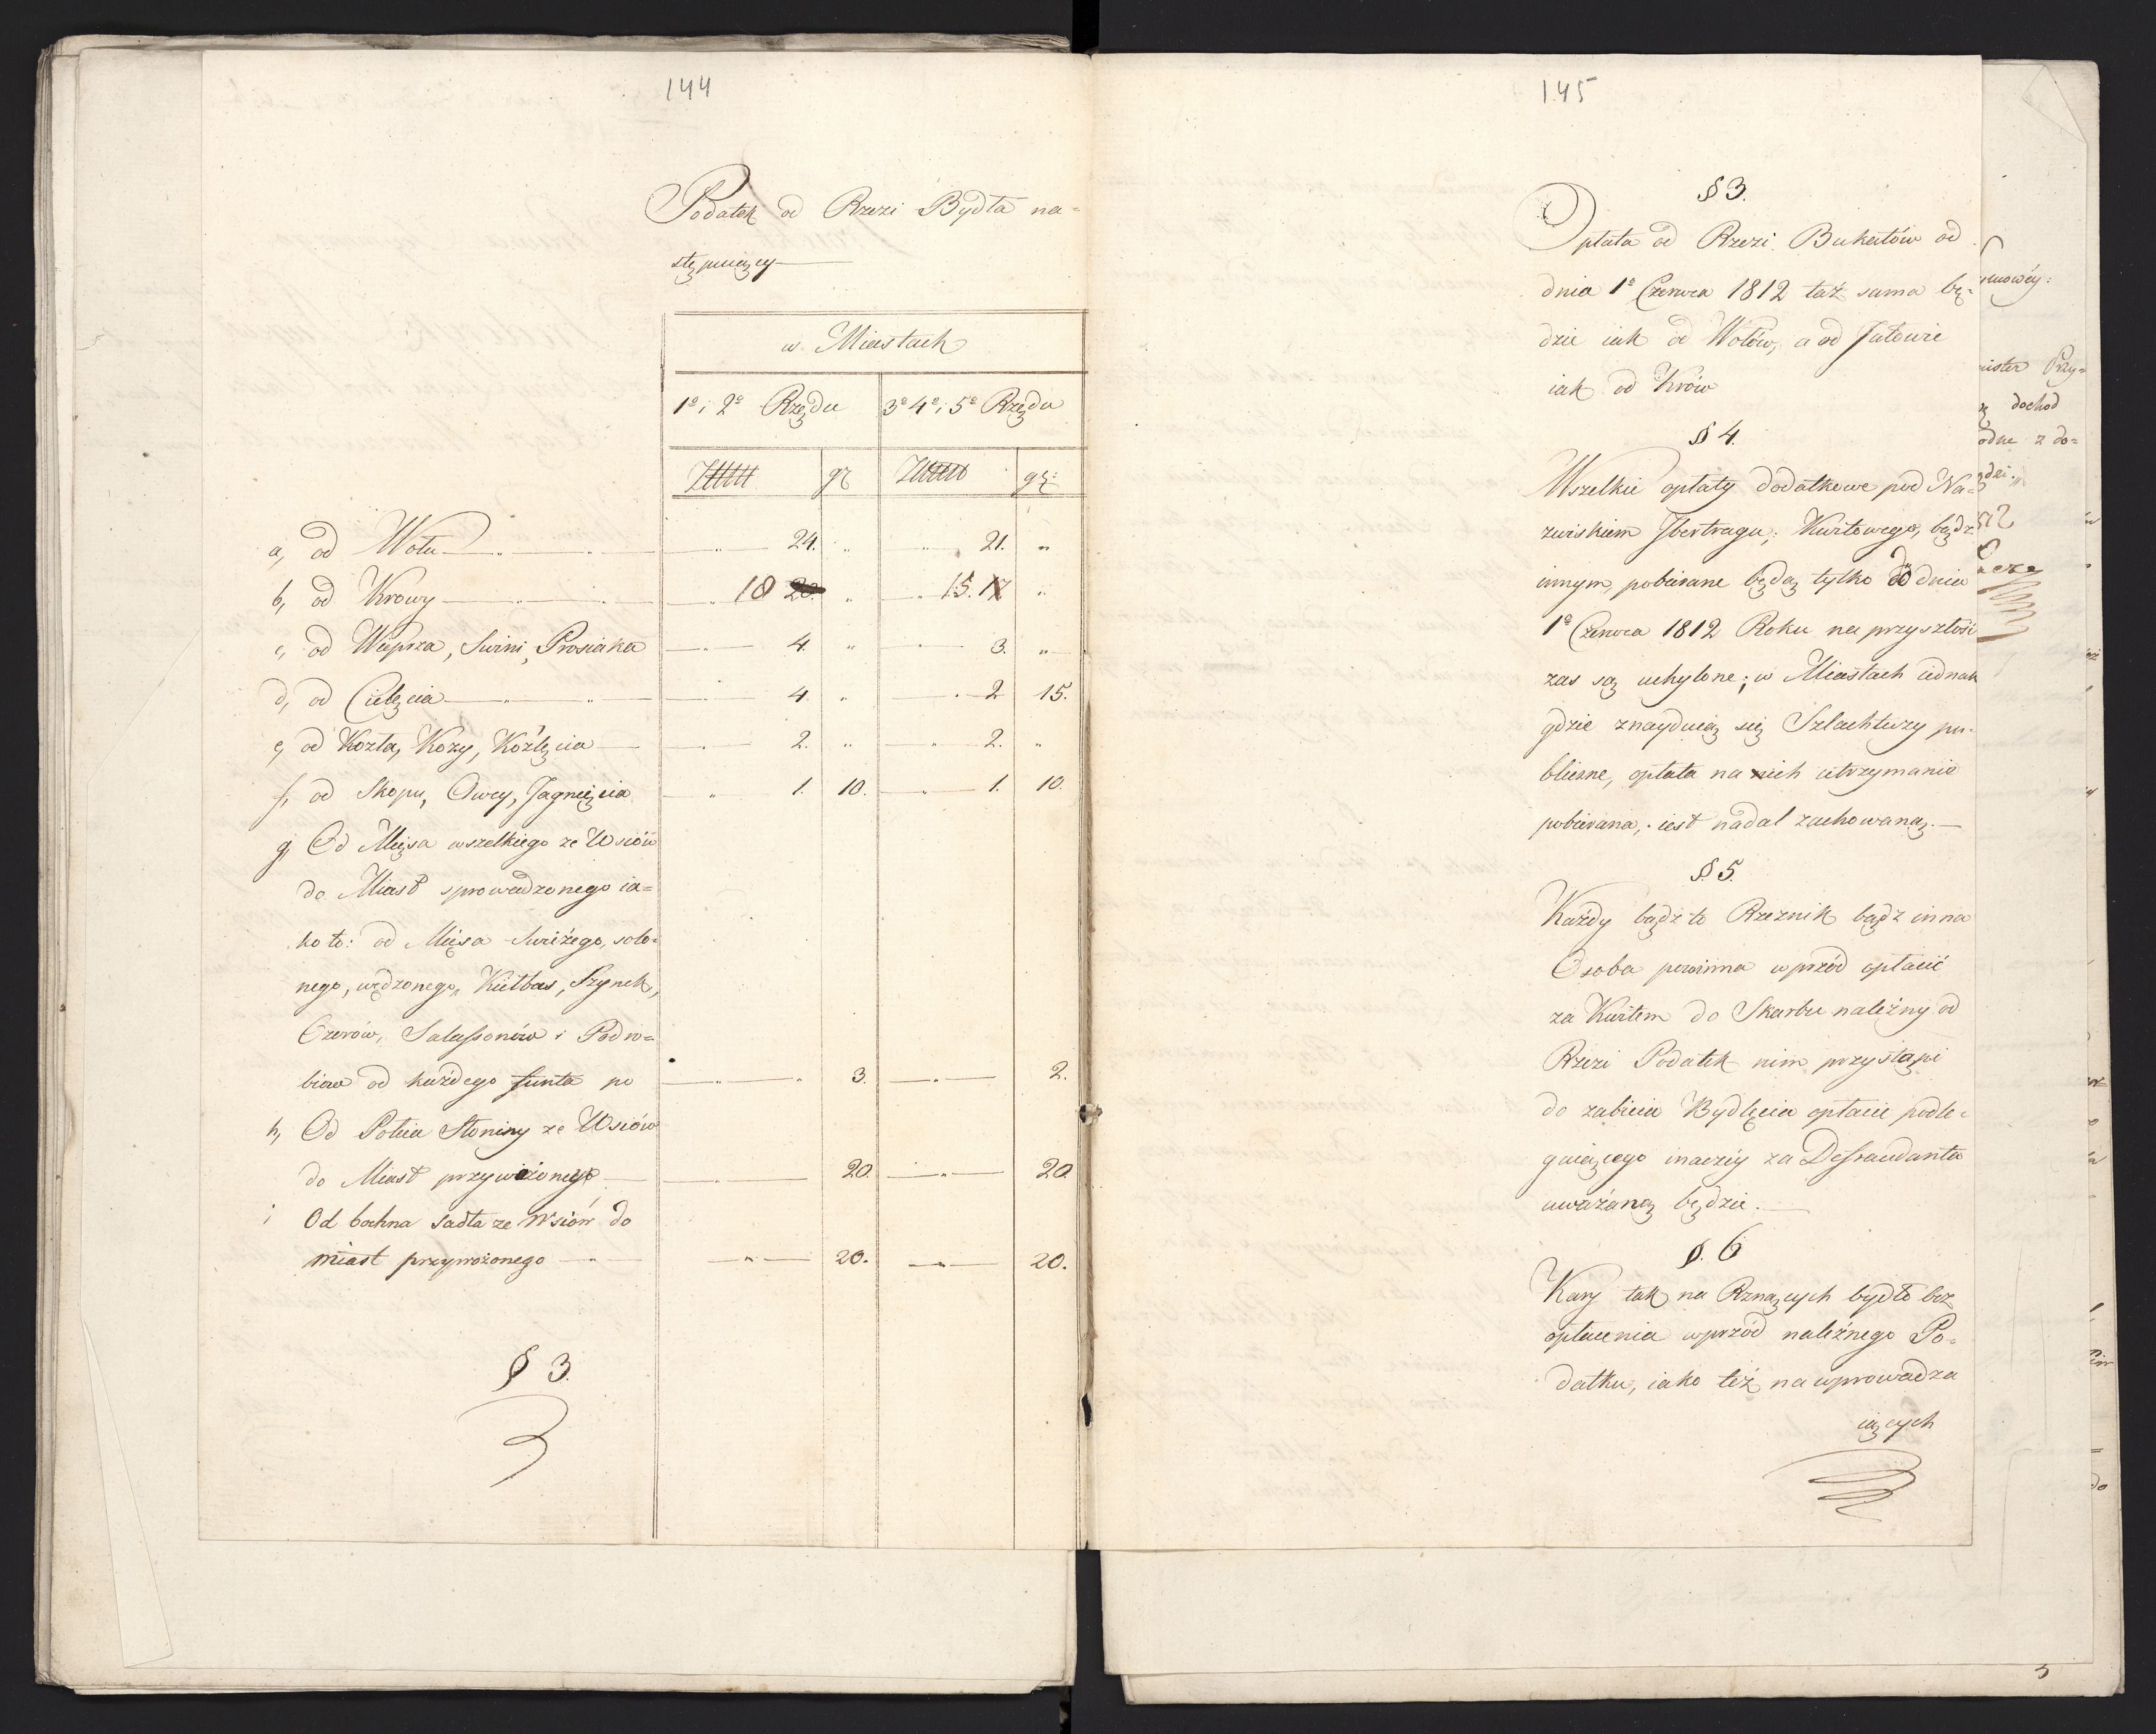 144
Podatek od Rzezi Bydła na=
stępuiący
w Miastach
1º i 2º Rzędu 3º 4º i 5º Rzędu
gr gr:
a, od Wołu 24. " 21. "
b, od Krowy 18 20. " 15. 17 "
c, od Wieprza, Swini, Prosiaka 4. " 3. "
d, od Cielęcia 4. " 2 15.
e, od Kozła, Kozy, Koźlęcia 2. " 2. "
f, od Skopu, Owcy, Jagnięcia 1. 10. 1. 10.
g, Od Mięsa wszelkiego ze Wsiów
do Miast sprowadzonego ia=
ko to: od Mięsa swieżego, solo=
nego, wędzonego, Kiełbas, Szynek,
Ozorów, Salassonów i Podro=
biow od każdego funta po 3. 2.
h, Od Polcia Słoniny ze Wsiów
do Miast przywiezionego 20. 20.
i Od bochna sadła ze Wsiów do
miast przywożonego 20. 20.
§ 3.
145
§ 3.
Opłata od Rzezi Bukatów od
dnia 1º Czerwca 1812 taż sama bę=
dzie iak od Wołów, a od Jałowic
iak od Krów
§ 4.
Wszelkie opłaty dodatkowe pod Na=
zwiskiem Ibertragu, Kwitowego, bądz
innym, pobierane będą tylko do dnia
1º Czerwca 1812 Roku na przyszłość
zas są uchylone; w Miastach iednak
gdzie znayduią się Szlachtuzy pu=
bliczne, opłata na ich utrzymanie
pobierana, iest nadal zachowaną.
§ 5.
Każdy bądź to Rzeznik bądz inna
Osoba powinna wprzód opłacić
za Kwitem do Skarbu należny od
Rzezi Podatek nim przystąpi
do zabicia Bydlęcia opłacie podle=
gaiącego inaczéy za Defraudanta
uważaną będzie.
§. 6
Kary tak na Rznących bydło bez
opłacenia wprzód należnego Po=
datku, iako też na wprowadza
iących
mister Przy=
dochod
z do=
do
3